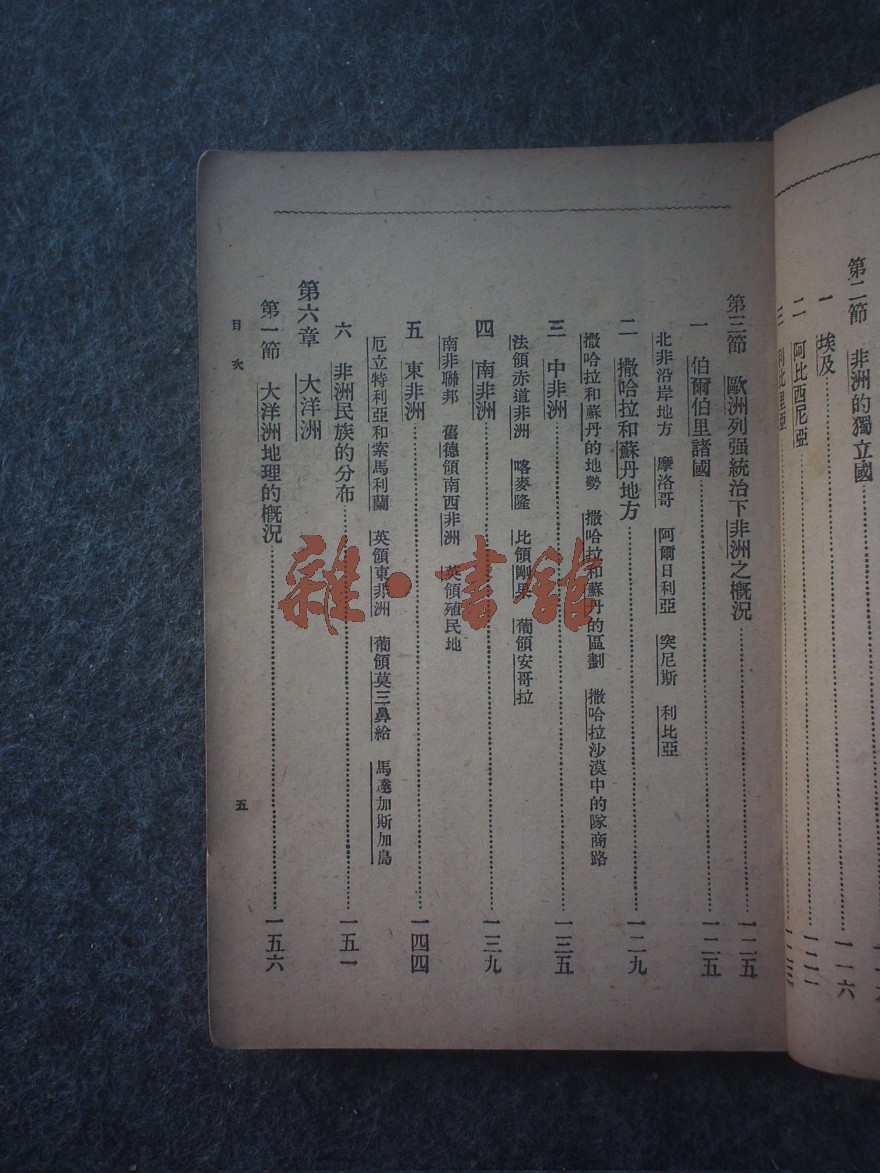 第二節 非洲的獨立國
一 埃及……一一六
二 阿比西尼亞……一二一
三 利比里亞……一二三
第三節 歐洲列强統治下非洲之概況……一二五
一 伯爾伯里諸國……一二五
北非沿岸地方 摩洛哥 阿爾日利亞 突尼斯 利比亞
二 撒哈拉和蘇丹地方……一二九
撒哈拉和蘇丹的地勢 撒哈拉和蘇丹的區劃 撒哈拉沙漠中的隊商路
三 中非洲……一三五
法領赤道非洲 喀麥隆 比領剛果 葡領安哥拉
四 南非洲……一三九
南非聯邦 舊德領南西非洲 英領殖民地
五 東非洲……一四四
厄立特利亞和索馬利蘭 英領東非洲 葡領莫三鼻給 馬達加斯加島
六 非洲民族的分布……一五一
第六章 大洋洲
第一節 大洋洲地理的概況……一五六
目次 五
雜·書館